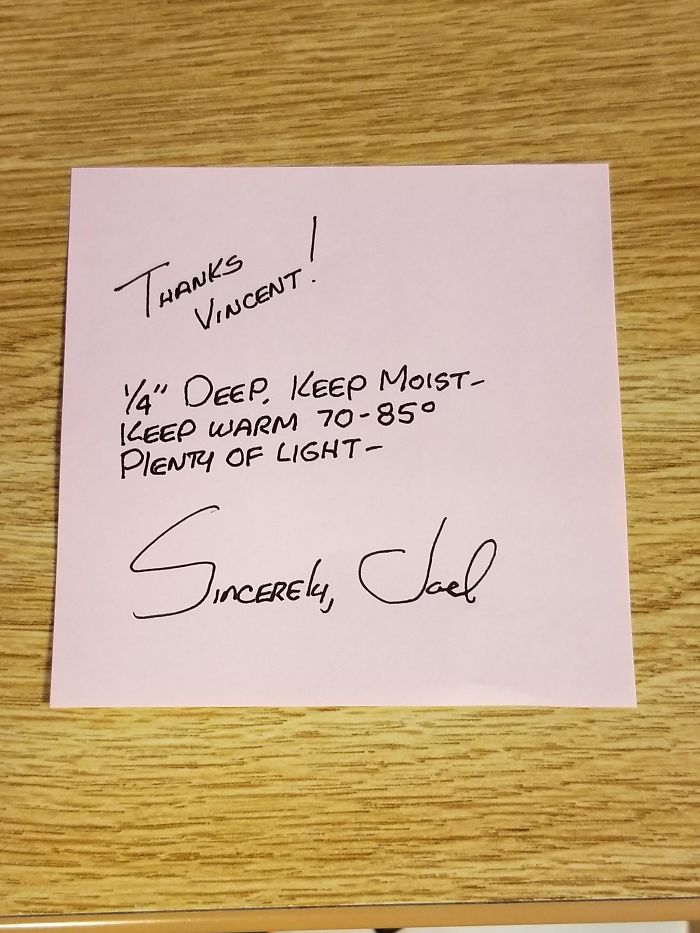 THANKS
VINCENT!
1/4" DEEP. KEEP MOIST-
KEEP WARM 70-85°
PLENTY OF LIGHT-
SINCERELY, Jael